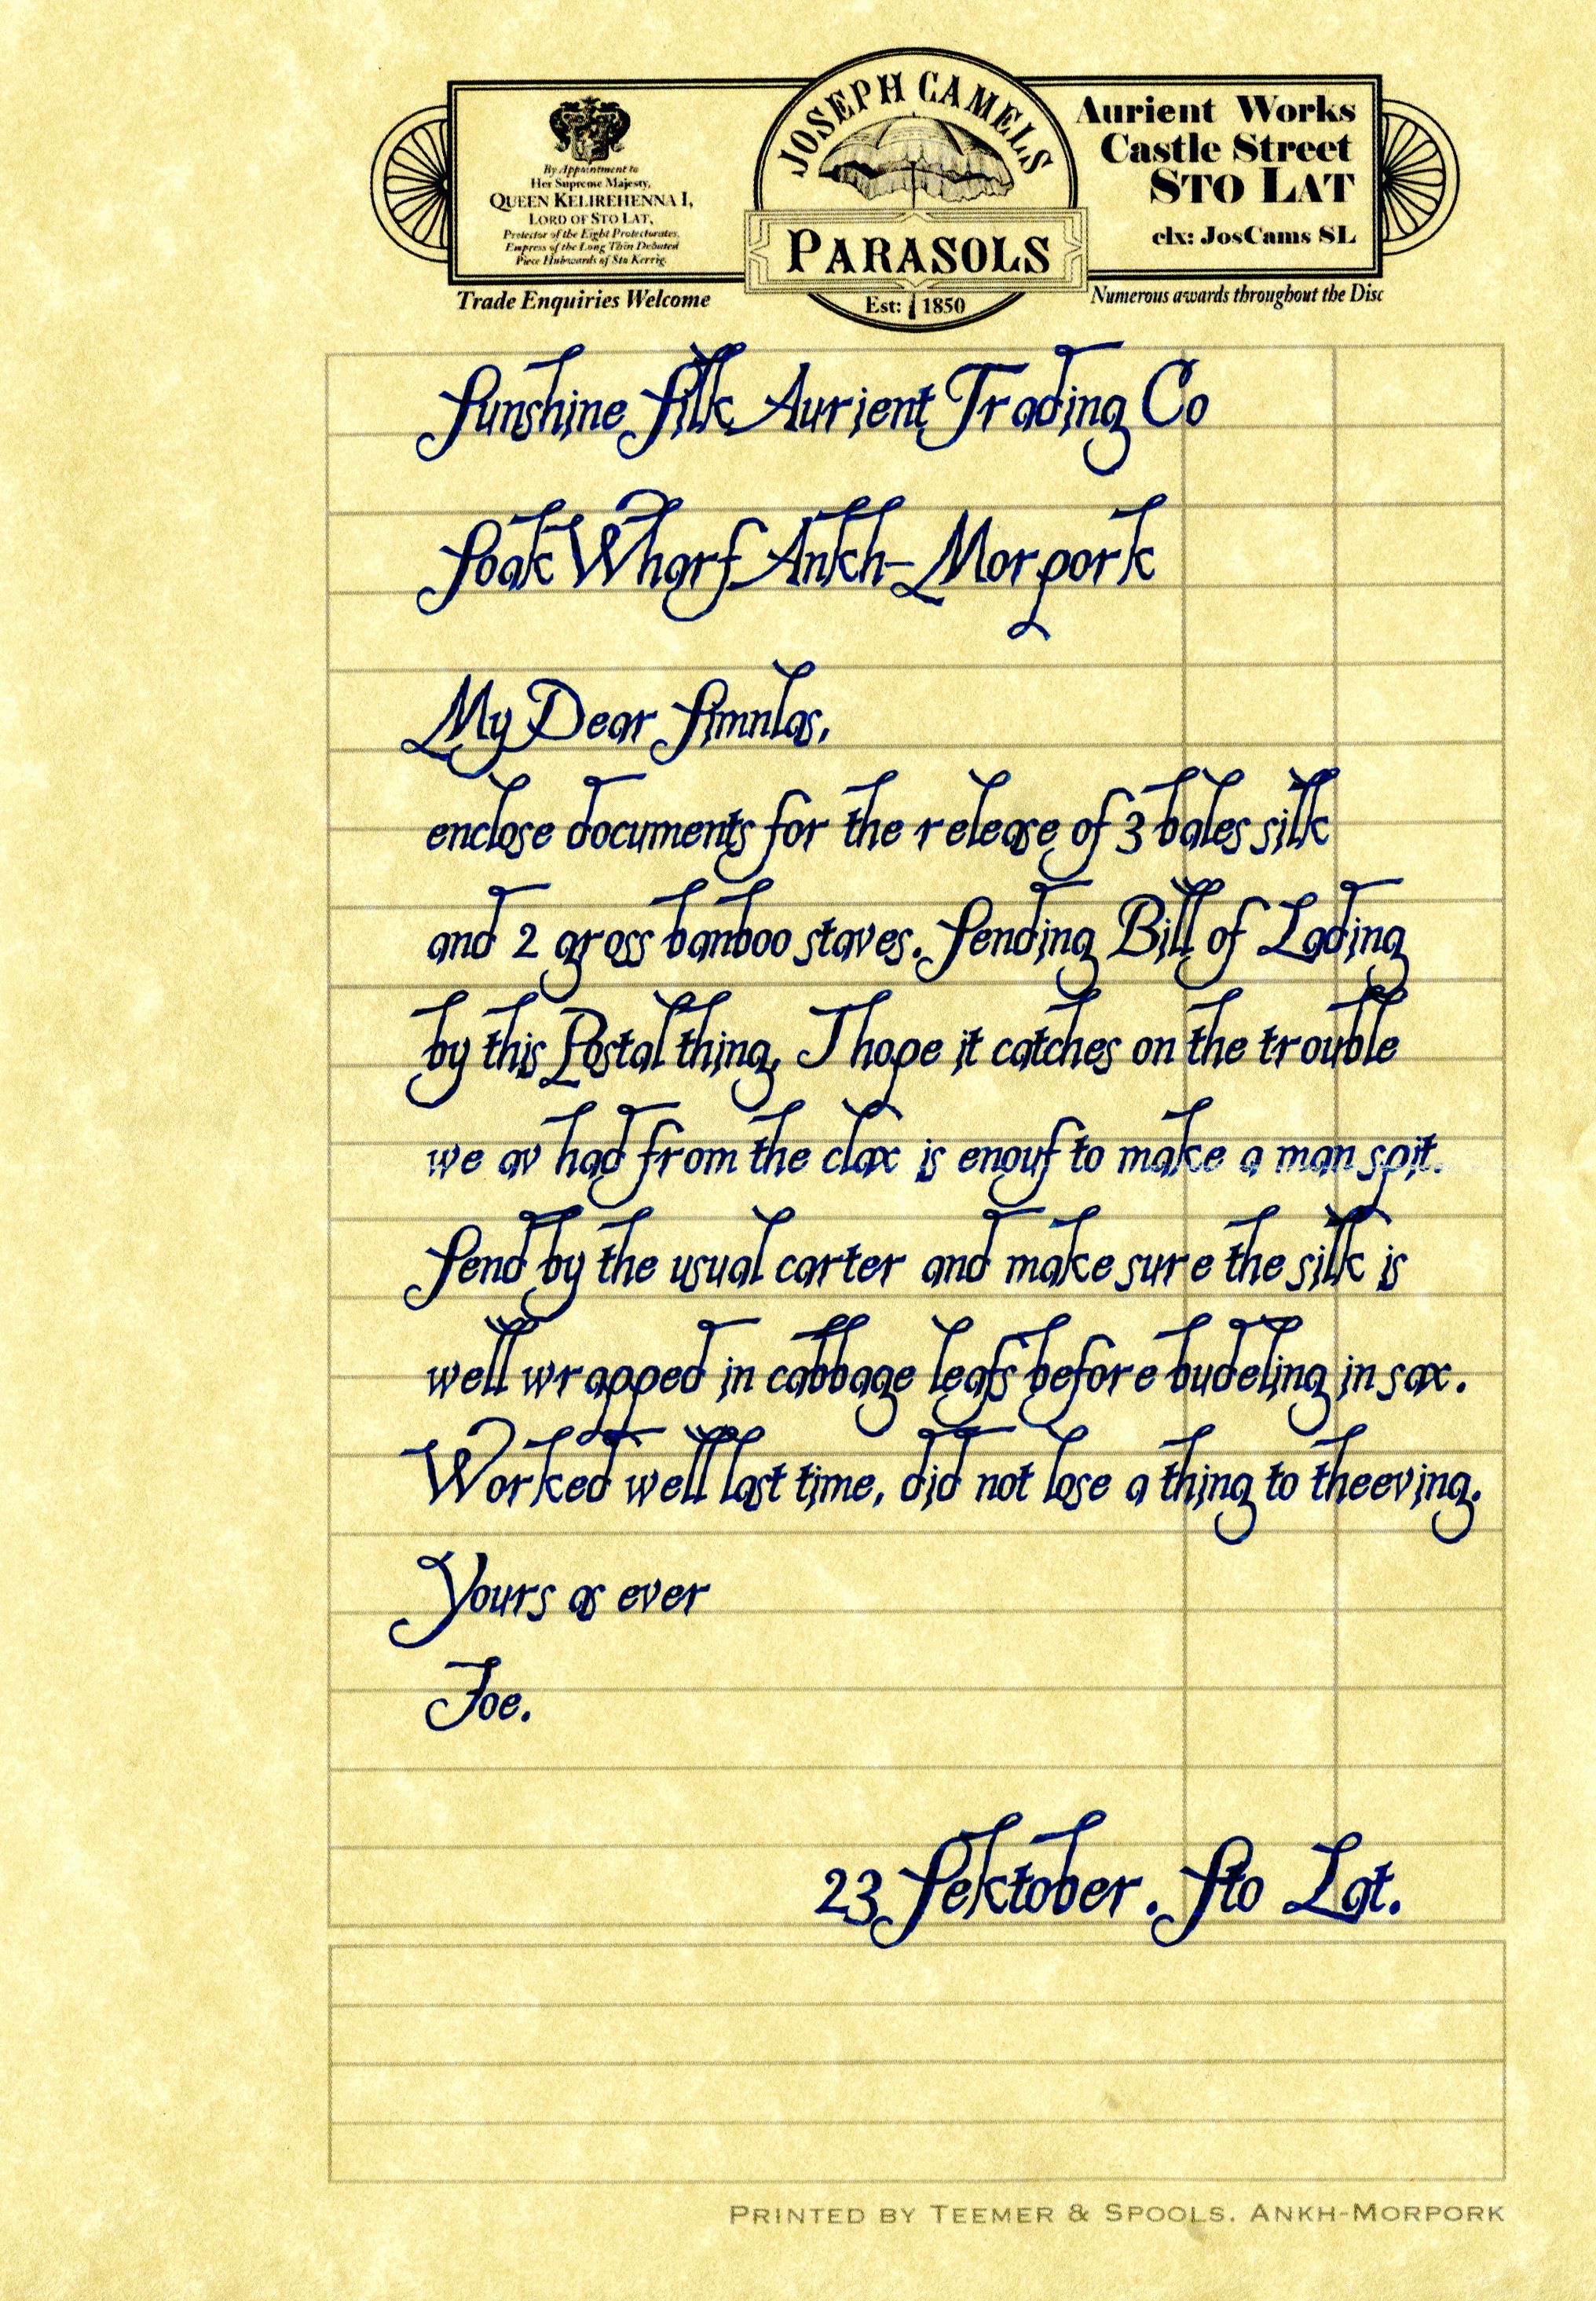 By Appointment to
Her Supreme Majesty,
QUEEN KELIREHENNA I,
LORD OF STO LAT,
Protector of the Eight Protectorates,
Empress of the Long Thin Debated
Piece Hubwards of Sto Kerrig.
Trade Enquiries Welcome
JOSEPH CAMELS
PARASOLS
Est: 1850
Aurient Works
Castle Street
STO LAT
clx: JosCams SL
Numerous awards throughout the Disc
Sunshine Silk Aurient Trading Co
Soak Wharf Ankh-Morpork
My Dear Simnlas,
enclose documents for the release of 3 bales silk
and 2 gross banboo staves. Sending Bill of Lading
by this Postal thing, I hope it catches on the trouble
we av had from the clax is enouf to make a man spit.
Send by the usual carter and make sure the silk is
well wrapped in cabbage leafs before budeling in sax.
Worked well last time, did not lose a thing to theeving.
Yours as ever
Joe.
23 Sektober. Sto Lat.
PRINTED BY TEEMER & SPOOLS. ANKH-MORPORK